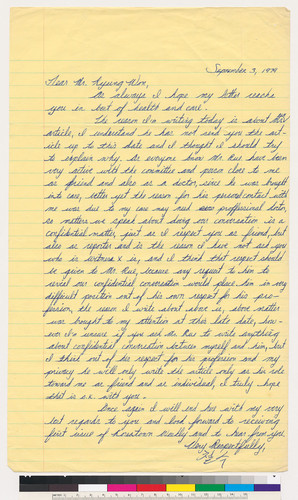 September 3, 1979
Dear Mr. Kyung Won,
As always I hope my letter reache
you in best of health and care.
The reason I'm writing today is about
article, I understand he has not send you the art-
icle up to this date and I thought I should try
to explain why. As everyone know Mr. have been
very active with the committee and person close to me
as friend and also as a doctor, since he was bought
into case, better yet the reason for his personal contact with
me was due to my case and his proffesional doctor,
as matters we speak about during our conversation is a
confidential matter, just as I respect you as friend, but
also as reporter and is the reason I have not ask you
who is witness x is, and I think that respect should
be given to Mr. because any request to him to
reveal our confidential conversation would place him in very
difficult position out of his own respect for his pro-
fession, the reason I write about above is, above matter
was bought to my attention at this late date, how-
ever I'm unsure if you ask Mr. to write anything
about confidential conversation between myself and him, but
I think out of his respect for his profession and my
privacy he will only write the article only as his role
toward me as friend and as individual, I truly hope
that is o.k. with you.
Once again I will end this with my very
best regards to you and look forward to receiving
first issue of Koreatown Weekly and to hear from you.
Very Respectfully,